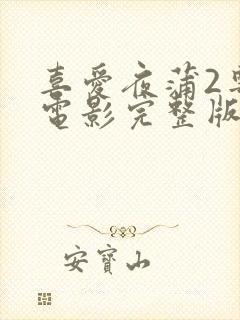 喜愛夜蒲2
電影完整版
安寶山